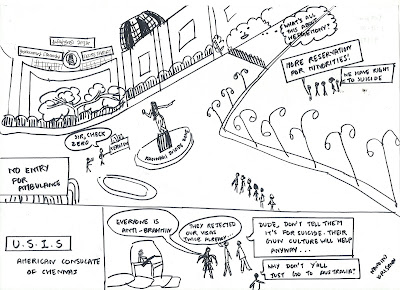 WHAT'S ALL
THIS
HEGEMONY?
MORE RESERVATION
FOR MINORITIES!
WE HAVE RIGHT
TO SUICIDE
SIR, CHECK
NO ENTRY
FOR
AMBULANCE
U.S.I.S
AMERICAN CONSULATE
OF CHENNAI
EVERYONE IS
ANTI-BRAHMIN
THEY REJECTED
OUR VISAS
TWICE ALREADY...
DUDE, DON'T TELL THEM
IT'S FOR SUICIDE. THEIR
GUN CULTURE WILL HELP
ANYWAY...
WHY DON'T Y'ALL
JUST GO TO AUSTRALIA?